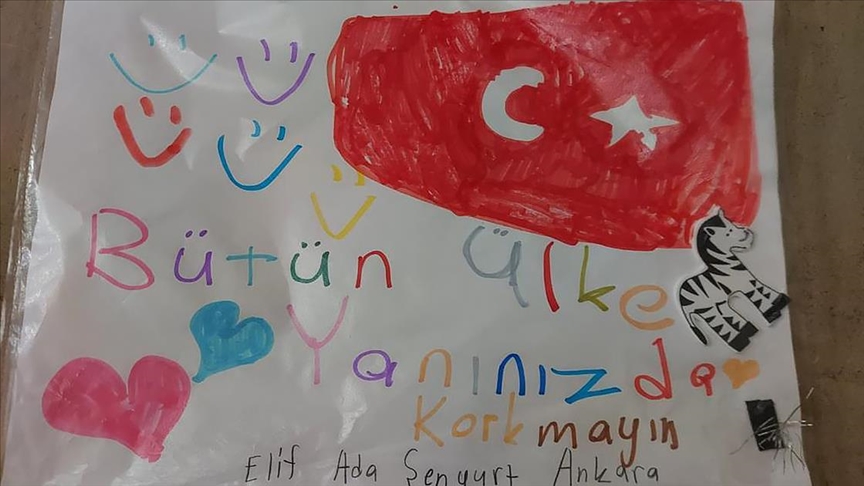 Bütün Ülke
Yanınızda
Korkmayın
Elif Ada Şenyurt Ankara